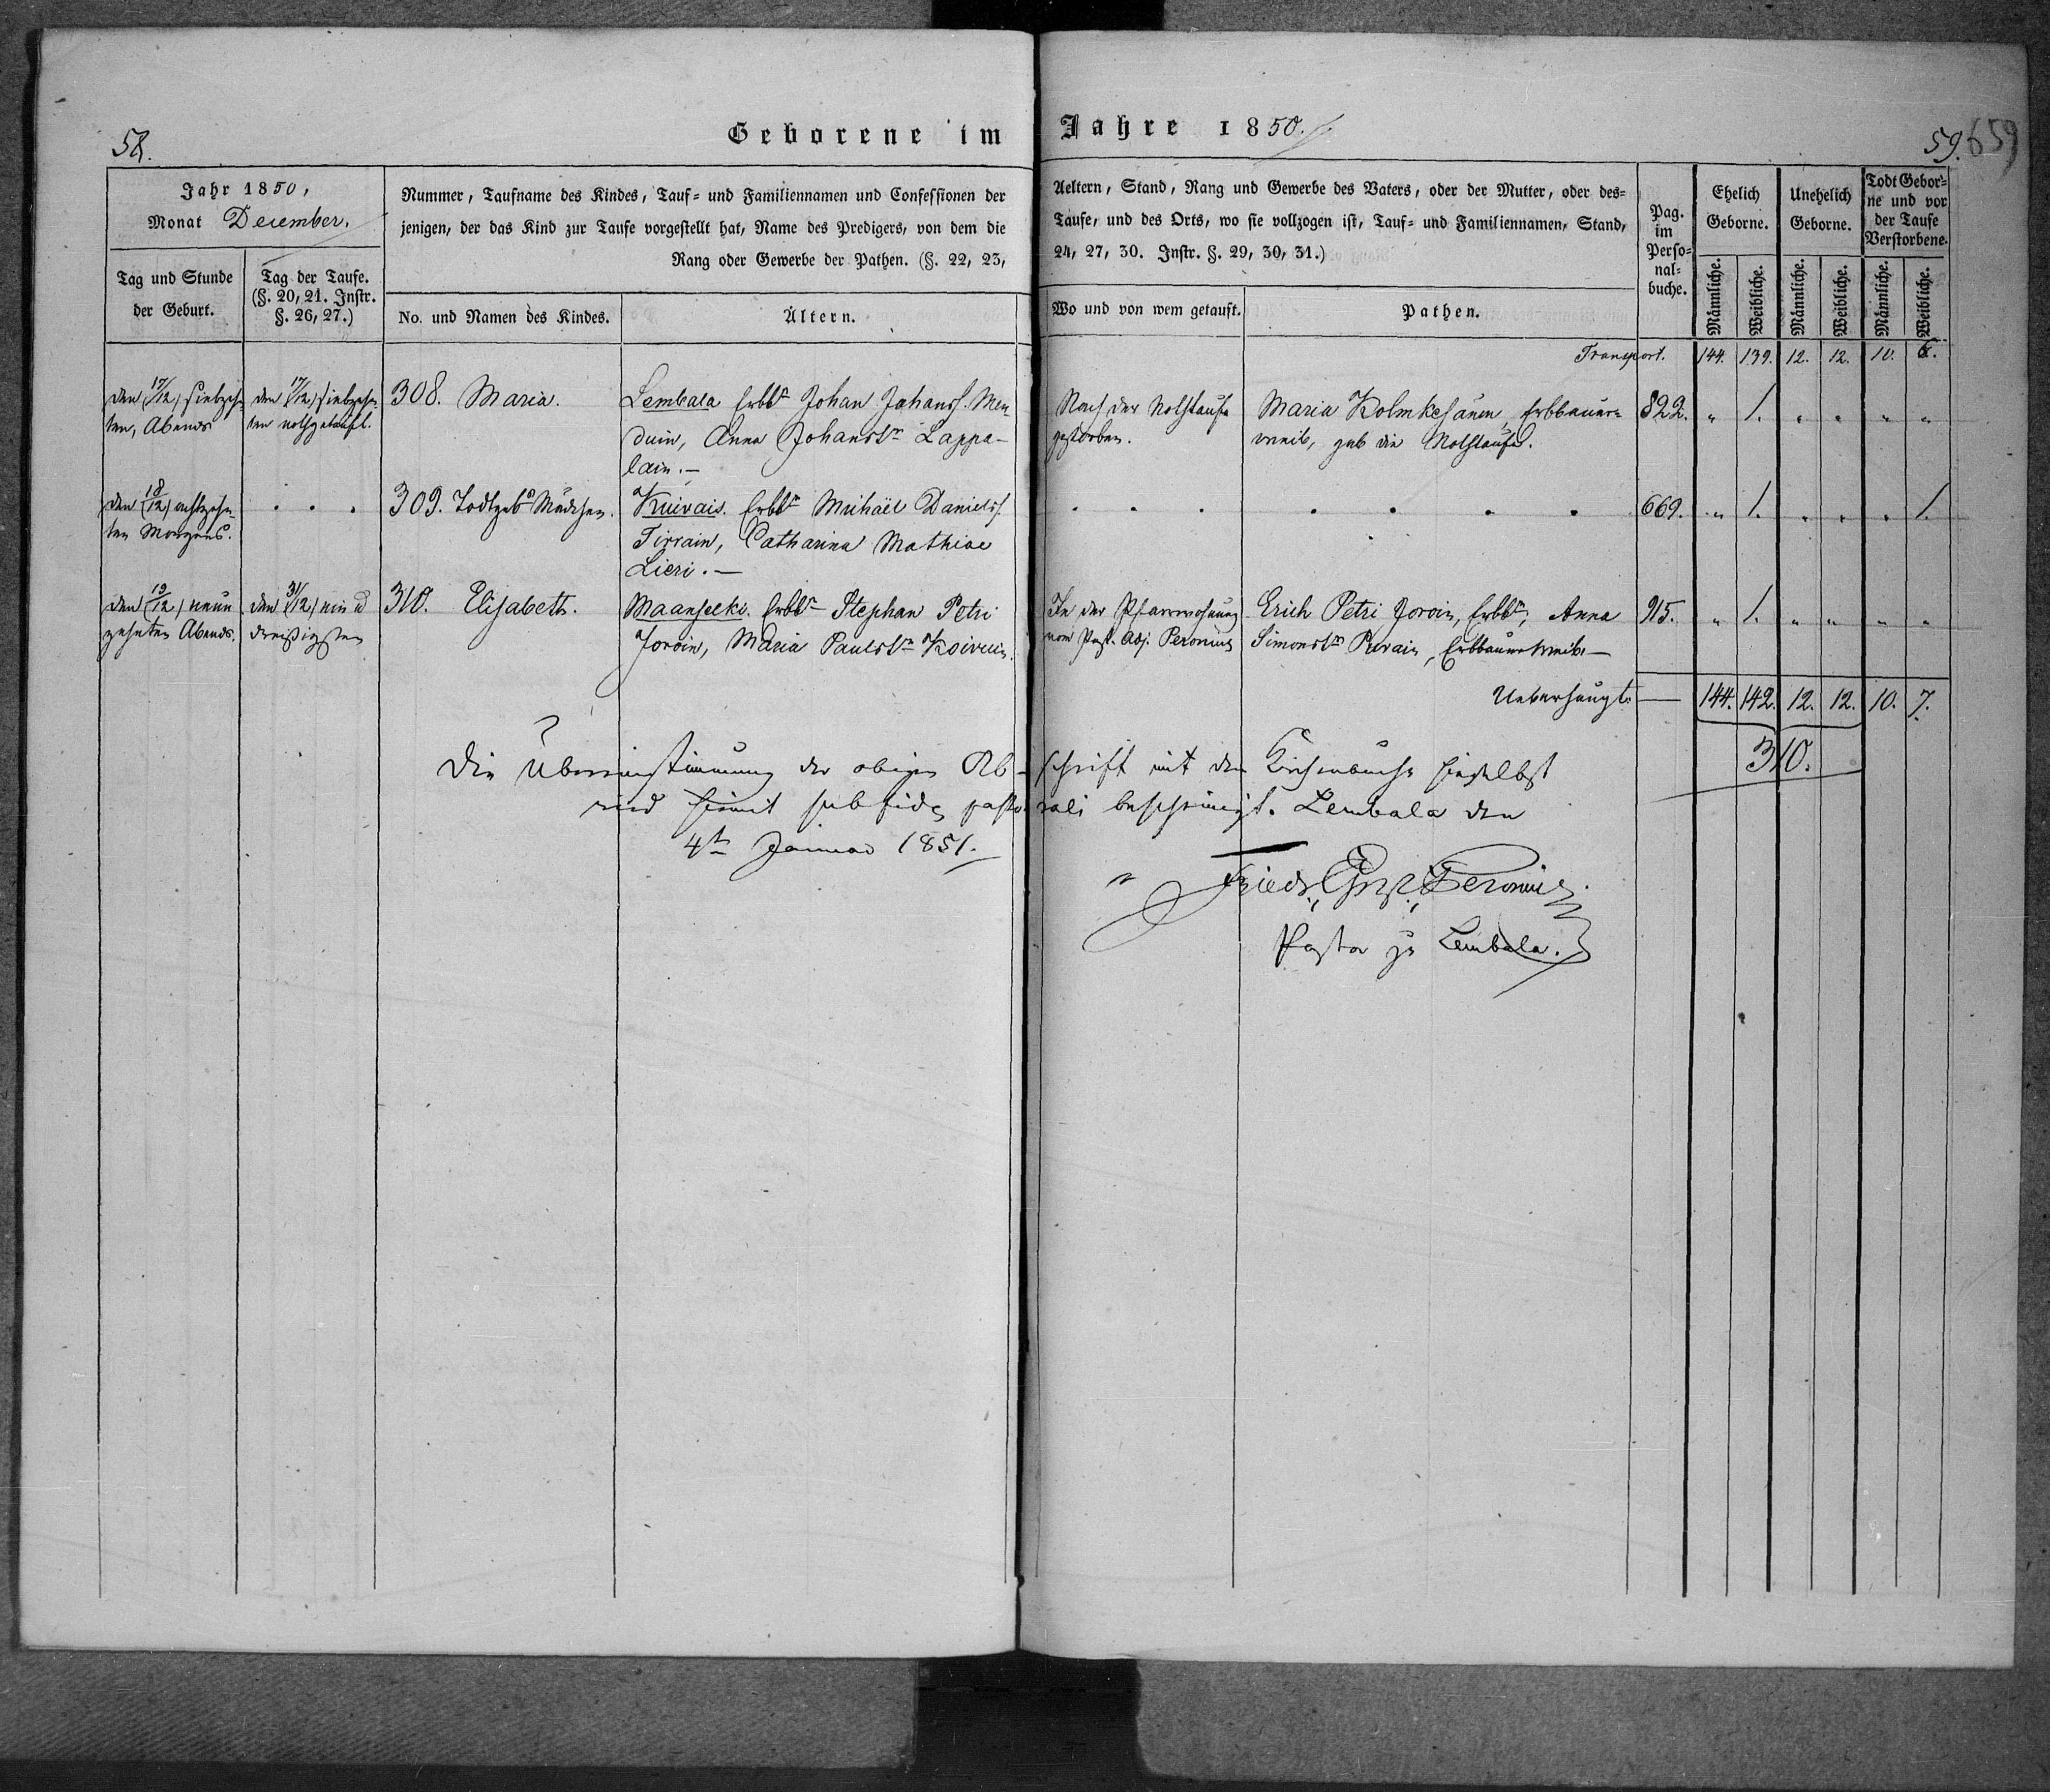 58.
Geborene im Jahre 1850.
59. 659
Jahr 1850,
Monat December.
Tag und Stunde
der Geburt.
Tag der Taufe.
(§. 20, 21. Instr.
§. 26, 27.)
Nummer, Taufname des Kindes, Tauf- und Familiennamen und Confessionen der
jenigen, der das Kind zur Taufe vorgestellt hat, Name des Predigers, von dem die
Rang oder Gewerbe der Pathen. (§. 22, 23,
No. und Namen des Kindes.
Ältern.
Aeltern, Stand, Rang und Gewerbe des Vaters, oder der Mutter, oder des-
Taufe, und des Orts, wo sie vollzogen ist, Tauf- und Familiennamen, Stand,
24, 27, 30. Instr. §. 29, 30, 31.)
Wo und von wem getauft.
Pathen.
Pag.
im
Perso-
nal-
buche.
Ehelich
Geborne.
Unehelich
Geborne.
Todt Gebor-
ne und vor
der Taufe
Verstorbene.
Männliche. Weibliche. Männliche. Weibliche. Männliche. Weibliche.
Transport. 144. 139. 12. 12. 10. 6.
den (17/12) siebzehn-
ten, Abends
den (17/12) siebzehn-
ten nothgetauft.
308. Maria.
Lembala Erbbr Johan Johanss. Men
duin, Anna Johanstr Lappa-
lain.—
Nach der Nothtaufe
gestorben.
Maria Kolmkesänen, Erbbauer-
weib, gab die Nothtaufe.
822. „ 1. „ „ „ „
den (18/12) achtzehn-
ten Morgens.
. . .
309. Todtgebs Mädchen.
Kuivais. Erbbr Michaël Daniels.
Tirrain, Catharina Mathiae
Lieri.—
. . . . . . .
669. „ 1. „ „ „ 1.
den (19/12) neun
zehnten Abends.
den (31/12) ein u
dreißigsten
310. Elisabeth.
Maanselki. Erbbr Stephan Petri
Joroin, Maria Paulstr Koivuin.
In der Pfarrwohnung
vom Past. Adj. Peronius
Erich Petri Joroin, Erbbr, Anna
Simonstr Purain, Erbbauerweib.—
915. „ 1. „ „ „ „
Ueberhaupt. — 144. 142. 12. 12. 10. 7.
310.
Die Übereinstimmung der obigen Ab-schrift mit dem Kirchenbuche hieselbst
wird hiemit sub fide pasto-rali bescheinigt. Lembala den
4ten Januar 1851.
Friedr. Peronius.
Pastor zu Lembala.